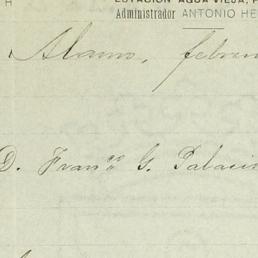 H ESTACION AGUA VIEJA, F
Administrador ANTONIO HE
Alamo, febrer
D. Franco G. Palacio